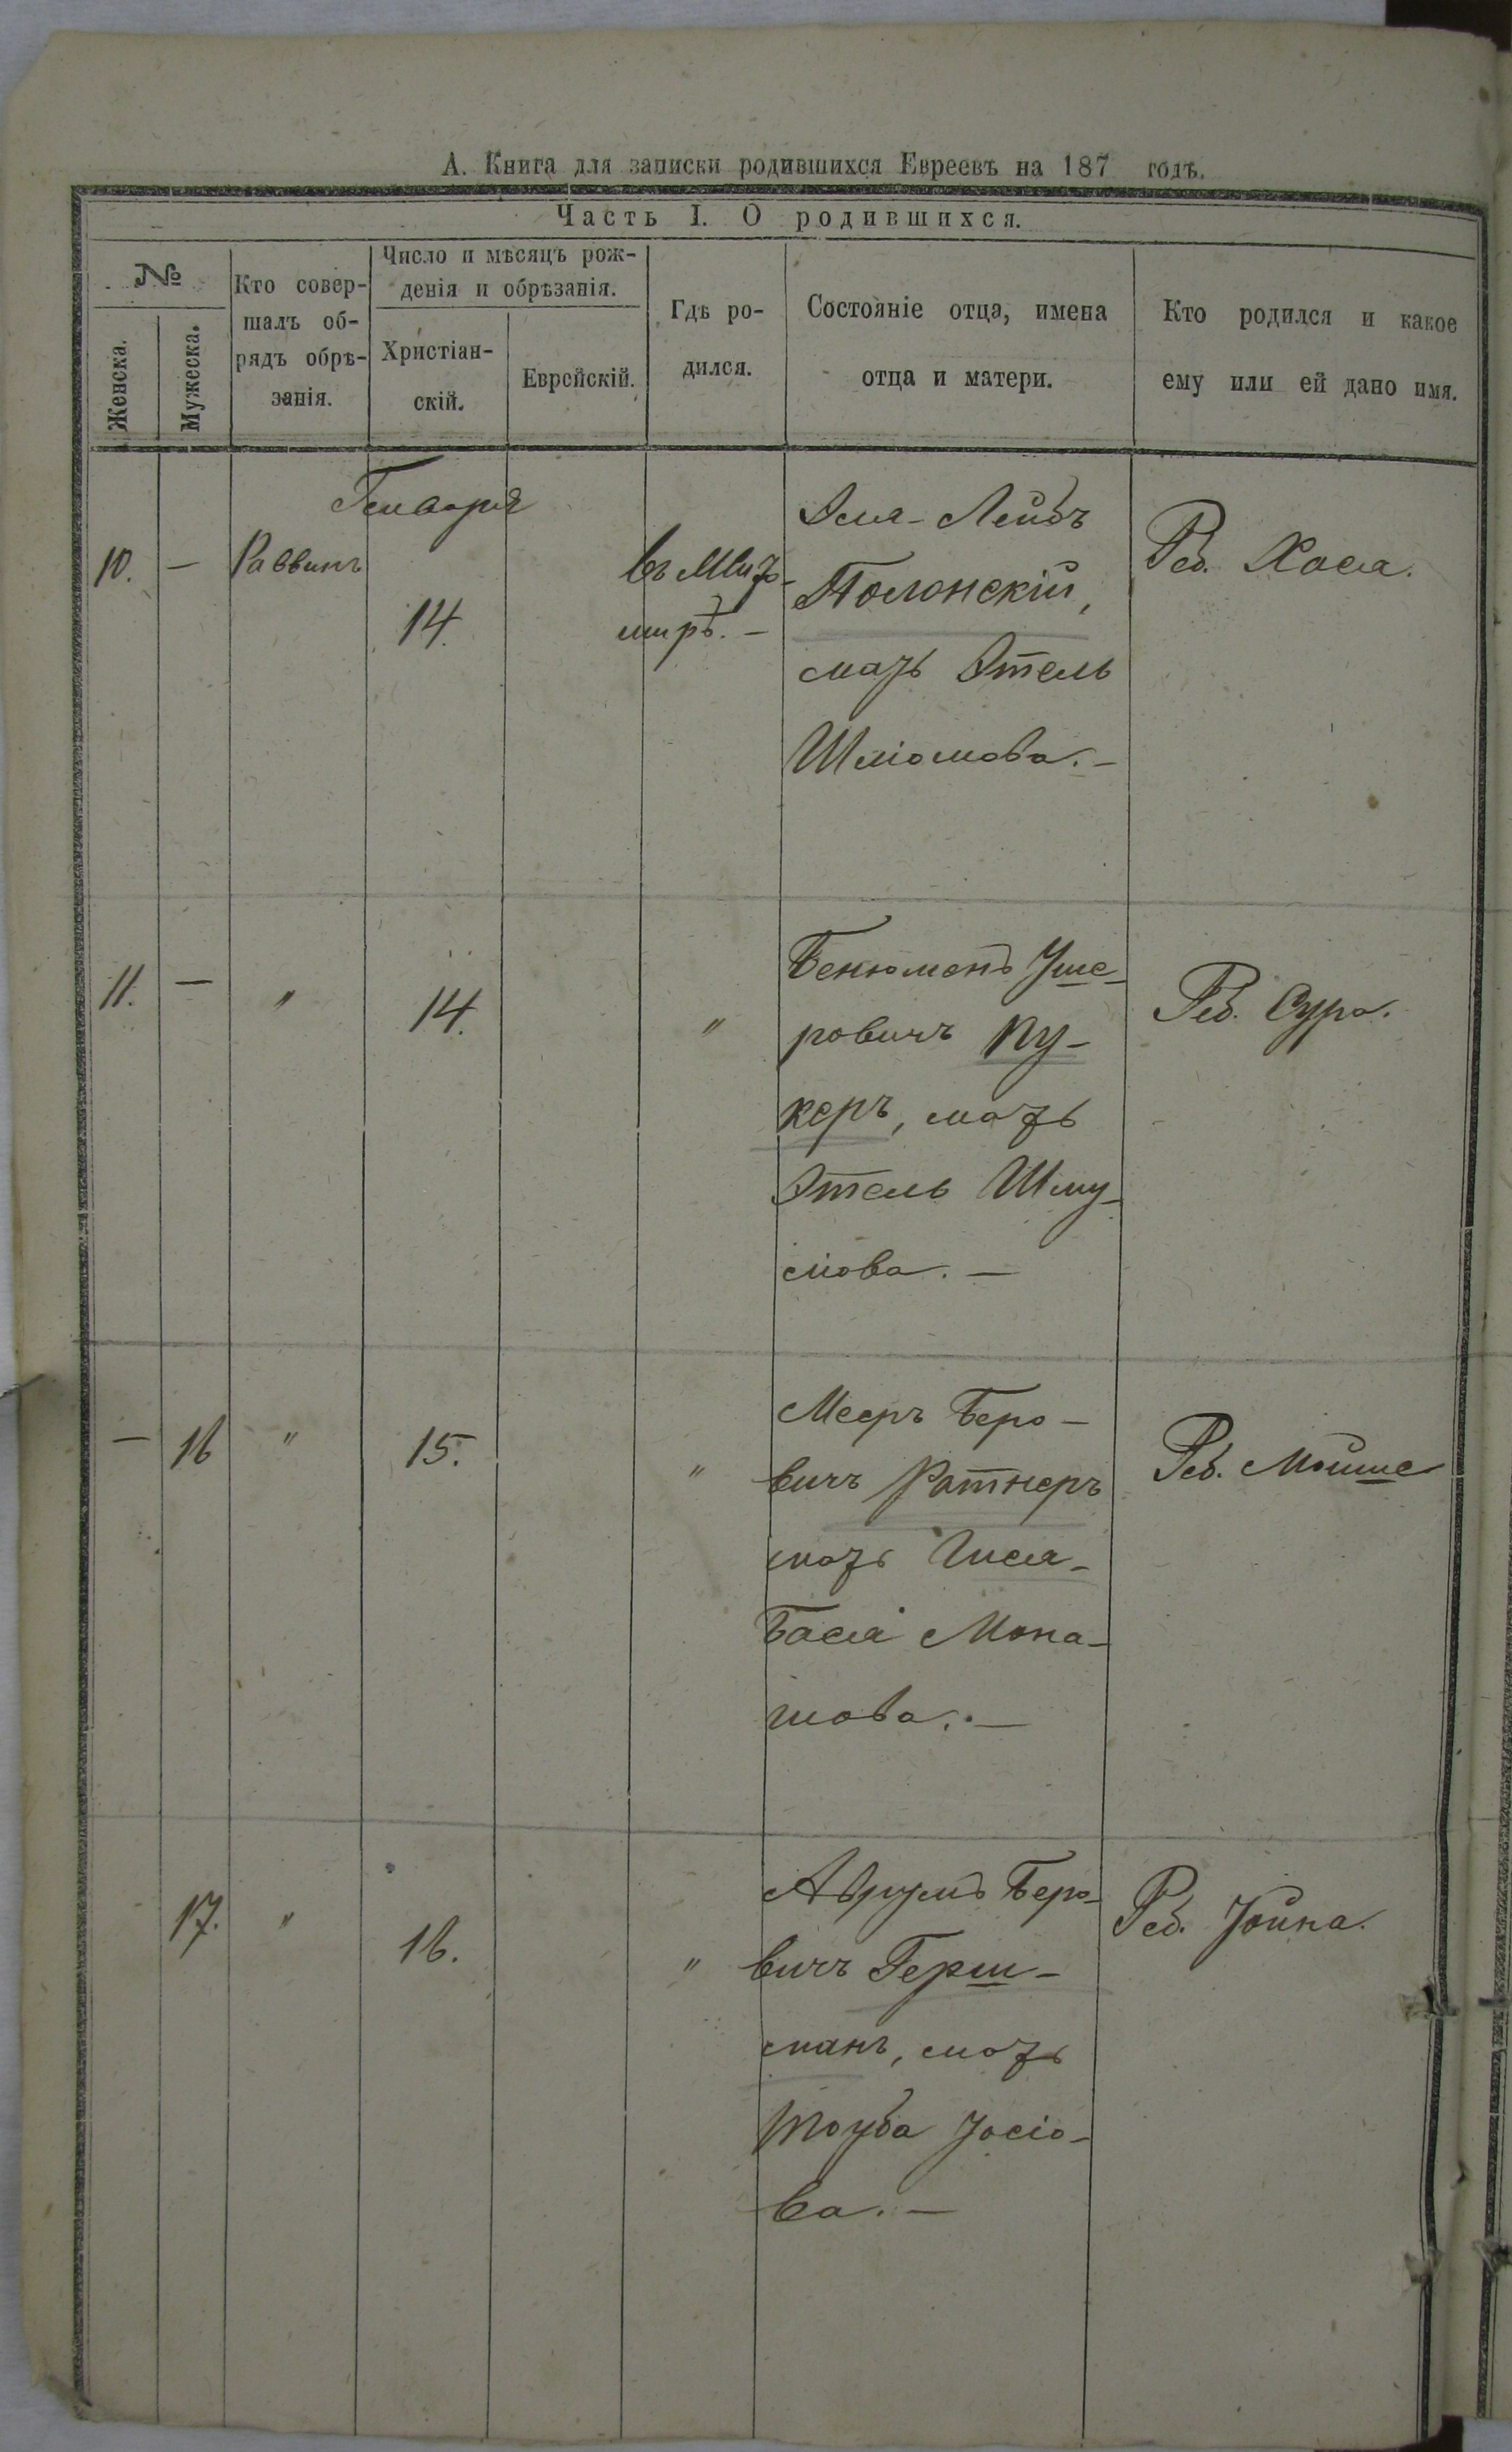 А. Книга для записки родившихся Евреевъ на 187 годъ.
Часть I. О родившихся.
№
Женска.
Мужеска.
Кто совер-
шалъ об-
рядъ обрѣ-
занія.
Число и мѣсяцъ рож-
денія и обрѣзанія.
Христіан-
скій.
Еврейскій.
Гдѣ ро-
дился.
Состояніе отца, имена
отца и матери.
Кто родился и какое
ему или ей дано имя.
Генваря
10. — Раввинъ
14.
мирѣ. —
Лейбъ
Полонскій,
мать Этель
Шліомова. —
Реб. Хася.
11. — " 14. "
Бенюменъ Уше-
ровичъ Ку-
керъ, мать
Этель Шму-
лiова. —
Реб. Сура.
— 16 " 15. "
Мееръ Беро-
вичъ Ратнеръ
мать
Бася Мона-
шова. —
Реб. Мойше
17. " 16. "
Аврумъ Беро-
вичъ Герш-
манъ, мать
Тоуба Іосіо-
ва. —
Реб. Іойна.